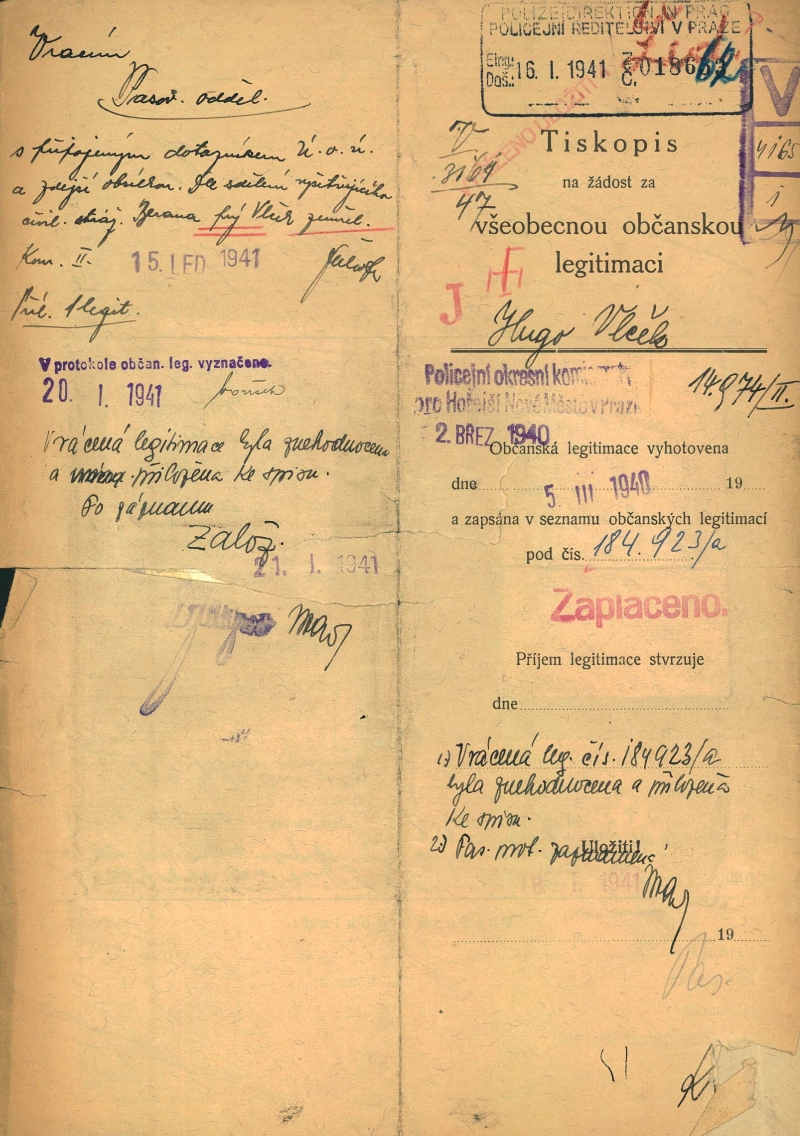 Vracím
Pasov. odděl.
s připojeným dotazníkem
a zdejší obsílkou. Dle sdělení
civil. stráž. Berana prý Vlček zemřel.
Kom. II. 15. LED 1941
Příl. 1 legit.
V protokole občan. leg. vyznačeno.
20. I. 1941
Vrácená legitimace byla znehodnocena
a přiložena ke spisu.
Po záznamu
Založ.
21. I. 1941
POLIZEIDIREKTION IN PRAG
POLICEJNÍ ŘEDITELSTVÍ V PRAZE
Eing.:
Doš.: 16. I. 1941
Z
Č.
V
3164
47
V
4165
1
Tiskopis
na žádost za
všeobecnou občanskou
legitimaci
J
Hugo Vlček
Policejní okresní komisařství
pro Hořejší Nové Město v Praze
14.974/II.
2. BŘEZ 1940
Občanská legitimace vyhotovena
dne 5 III 1940 19
a zapsána v seznamu občanských legitimací
pod čís. 184.923/a
Zaplaceno.
Příjem legitimace stvrzuje
dne
1) Vrácená leg. čís. 184923/a
byla znehodnocena a přiložena
ke spisu.
2) Pas. prot. zaznamenal
Uložiti!
I. 1941
19
Pas.